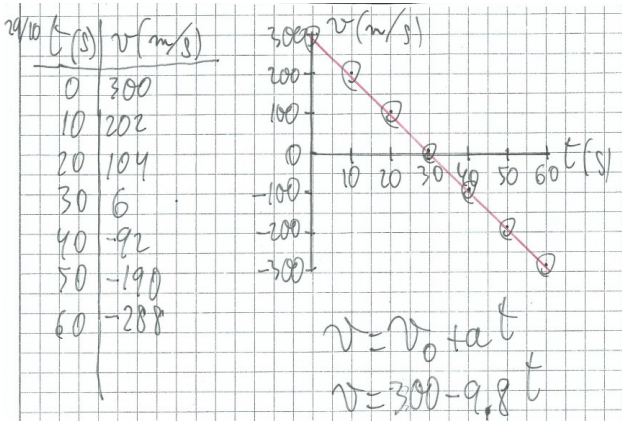 29/10
t(s) v(m/s)
0 300
10 202
20 104
30 6
40 -92
50 -190
60 -288
v(m/s)
300
200
100
0
-100
-200
-300
10 20 30 40 50 60 t(s)
v=v₀+at
v=300-9.8t